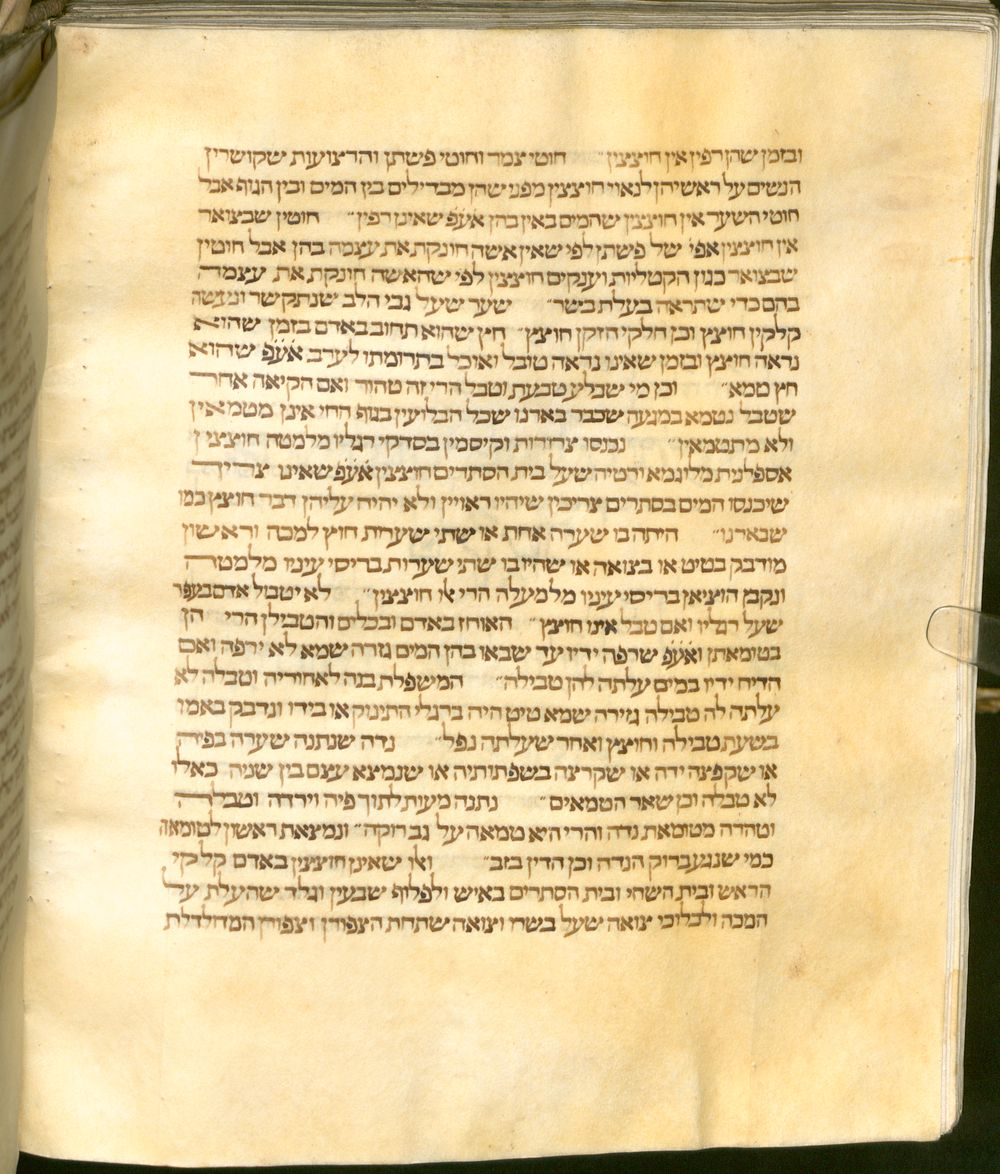 ובזמן שהן רפין אין חוצצין״ חוטי צמר וחוטי פשתן והרצועות שקושרין
הנשים על ראשיהן לנאוי חוצצין מפני שהן מבדילים בין המים ובין הגוף אבל
חוטי השער אין חוצצין שהמים באין בהן אע֗פ֗ שאינן רפין״ חוטין שבצואר
אין חוצצין אפי׳ של פשתן לפי שאין אשה חונקת את עצמה בהן אבל חוטין
שבצואר כגון הקטליות וענקים חוצצין לפי שהאשה חונקת את עצמה
בהם כדי שתראה בעלת בשר״ שער שעל גבי הלב שנתקשר ונעשה
קלקין חוצץ וכן חלקי הזקן חוצץ״ חץ שהוא תחוב באדם בזמן שהוא
נראה חוצץ ובזמן שאינו נראה טובל ואוכל בתרומתו לערב אע֗פ֗ שהוא
חץ טמא״ וכן מי שבלע טבעת וטבל הרי זה טהור ואם הקיאה אחר
שטבל נטמא במגעה שכבר בארנו שכל הבלועין בגוף החי אינן מטמאין
ולא מתטמאין״ נכנסו צרורות וקיסמין בסדקי רגליו מלמטה חוצצין
אספלנית מלוגמא ורטיה שעל בית הסתרים חוצצין אע֗פ֗ שאינו צריך
שיכנסו המים בסתרים צריכין שיהיו ראויין ולא יהיה עליהן דבר חוצץ כמו
שבארנו״ היתה בו שערה אחת או שתי שערות חוץ למכה וראשון
מודבק בטיט או בצואה או שהיו בו שתי שערות בריסי עיניו מלמטה
ונקבן הוציאן בריסי עיניו מלמעלה הרי אלו חוצצין״ לא יטבול אדם בעפר
שעל רגליו ואם טבל אינו חוצץ״ האוחז באדם ובכלים והטבילן הרי הן
בטומאתן ואע֗פ֗ שרפה ידיו עד שבאו בהן המים גזרה שמא לא ירפה ואם
הדיח ידיו במים עלתה להן טבילה״ המשפלת בנה לאחוריה וטבלה לא
עלתה לה טבילה גזירה שמא טיט היה ברגלי התינוק או בידו ונדבק באמו
בשעת טבילה וחוצץ ואחר שעלתה נפל״ נדה שנתנה שערה בפיה
או שקפצה ידה או שקרצה בשפתותיה או שנמצא עצם בין שניה כאלו
לא טבלה וכן שאר הטמאים״ נתנה מעות לתוך פיה וירדה וטבלה
וטהרה מטומאת נדה והרי היא טמאה על גב רוקה״ ונמצאת ראשון לטומאה
כמי שנגע ברוק הנדה וכן הדין בזב״ ואלו שאינן חוצצין באדם קלקי
הראש ובית השחי ובית הסתרים באיש ולפלוף שבעין וגלד שהעלת על
המכה ולכלוכי צואה שעל בשרו וצואה שתחת הצפורן וצפורן המדולדלת